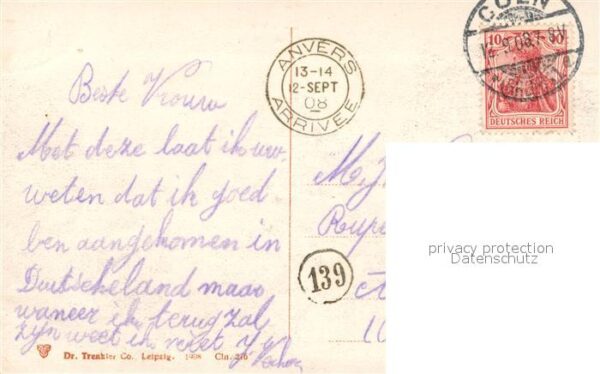 CÖLN
12.9.08.
10 10
DEUTSCHES REICH
ANVERS
13-14
12-SEPT
08
ARRIVÉE
Beste Vrouw
Met deze laat ik uw
weten dat ik goed
ben aangekomen in
Duitscheland maar
waneer ik terug zal
zijn weet ik niet
Rupe
139
privacy protection
Datenschutz
Dr. Trenkler Co. Leipzig. 1908 Cln. 210